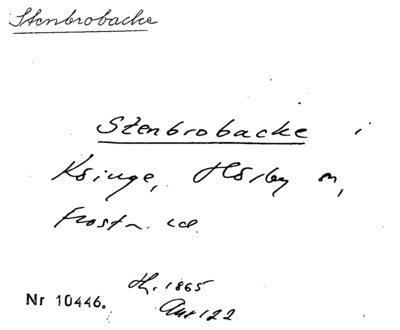 Stenbrobacke
Stenbrobacke i
Ksinge, Hörby sn,
Frosta hd.
Nr 10446. Hh. 1865
Anr 122